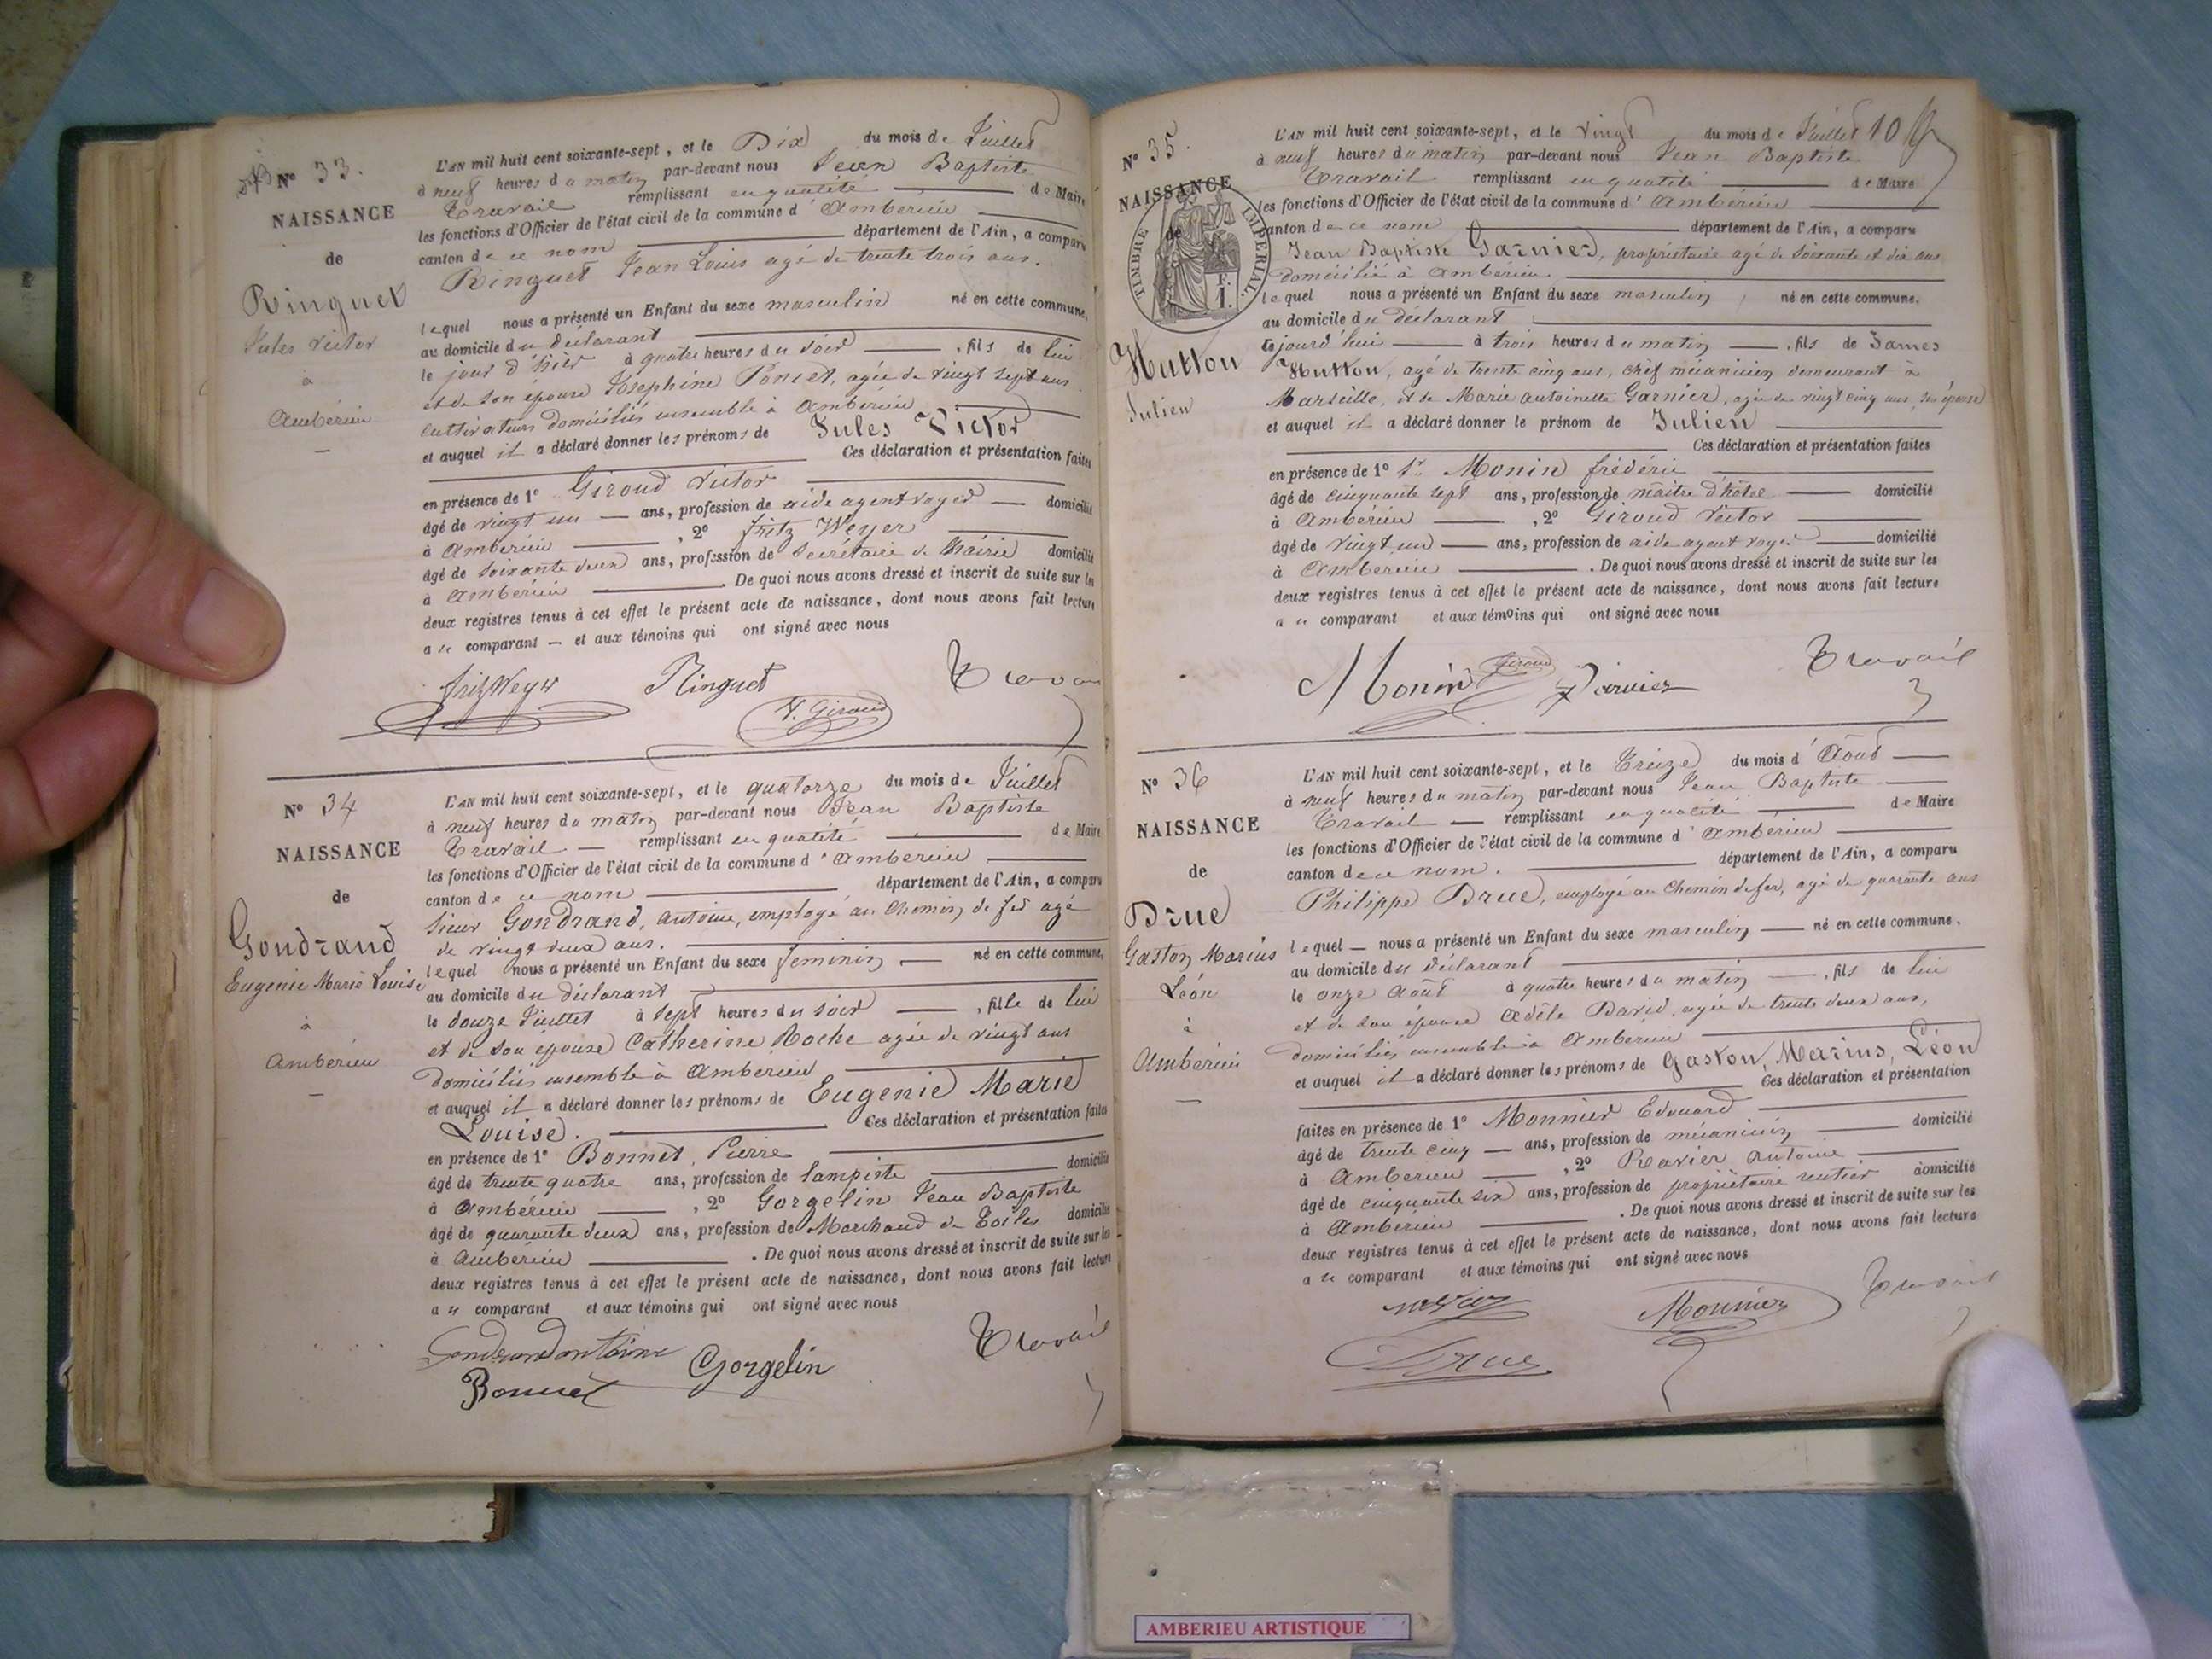 N° 33.
NAISSANCE
de
Ringuet
Jules Victor
à
Ambérieu
L'AN mil huit cent soixante-sept, et le Dix du mois de Juillet
à neuf heures du matin par-devant nous Jean Baptiste
Travail remplissant en qualité de Maire
les fonctions d'Officier de l'état civil de la commune d'Ambérieu
canton de ce nom département de l'Ain, a comparu
Ringuet Jean Louis agé de trente trois ans.
lequel nous a présenté un Enfant du sexe masculin né en cette commune,
au domicile du déclarant
le jour d'hier à quatre heures du soir, fils de lui
et de son épouse Joséphine Poncet, agée de vingt sept ans
cultivateurs domiciliés ensemble à Ambérieu
et auquel il a déclaré donner les prénoms de Jules Victor
Ces déclaration et présentation faites
en présence de 1° Giroud Victor
âgé de vingt un ans, profession de aide agent voyer domicilié
à Ambérieu, 2° Fritz Weyer
âgé de soixante deux ans, profession de Secrétaire de Mairie domicilié
à Ambérieu. De quoi nous avons dressé et inscrit de suite sur les
deux registres tenus à cet effet le présent acte de naissance, dont nous avons fait lecture
au comparant et aux témoins qui ont signé avec nous
Fritz Weyer Ringuet Travail
V. Giroud
N° 34
NAISSANCE
de
Gondrand
Eugenie Marie Louise
à
Ambérieu
L'AN mil huit cent soixante-sept, et le quatorze du mois de Juillet
à neuf heures du matin par-devant nous Jean Baptiste
Travail remplissant en qualité de Maire
les fonctions d'Officier de l'état civil de la commune d'Ambérieu
canton de ce nom département de l'Ain, a comparu
Sieur Gondrand, Antoine, employé au Chemin de fer agé
de vingt deux ans.
lequel nous a présenté un Enfant du sexe feminin né en cette commune,
au domicile du déclarant
le douze Juillet à sept heures du soir, fille de lui
et de son épouse Catherine Roche agée de vingt ans
domiciliés ensemble à Ambérieu
et auquel il a déclaré donner les prénoms de Eugenie Marie
Louise. Ces déclaration et présentation faites
en présence de 1° Bonnet, Pierre
âgé de trente quatre ans, profession de lampiste domicilié
à Ambérieu, 2° Gorgelin Jean Baptiste
âgé de quarante deux ans, profession de Marchand de Toiles domicilié
à Ambérieu. De quoi nous avons dressé et inscrit de suite sur les
deux registres tenus à cet effet le présent acte de naissance, dont nous avons fait lecture
au comparant et aux témoins qui ont signé avec nous
Gondrand Antoine Gorgelin Travail
Bonnet
N° 35.
NAISSANCE
de
TIMBRE IMPERIAL.
F.
1.
Hutton
Julien
10
L'AN mil huit cent soixante-sept, et le vingt du mois de Juillet
à neuf heures du matin par-devant nous Jean Baptiste
Travail remplissant en qualité de Maire
les fonctions d'Officier de l'état civil de la commune d'Ambérieu
canton de ce nom département de l'Ain, a comparu
Jean Baptiste Garnier, propriétaire agé de soixante et dix ans
domicilié à Ambérieu
lequel nous a présenté un Enfant du sexe masculin né en cette commune,
au domicile du déclarant
cejourd'hui à trois heures du matin, fils de James
Hutton, agé de trente cinq ans, chef mécanicien demeurant à
Marseille, et de Marie Antoinette Garnier, agée de vingt cinq ans, son épouse
et auquel il a déclaré donner le prénom de Julien
Ces déclaration et présentation faites
en présence de 1° Sr Monin frédéric
âgé de cinquante sept ans, profession de maître d'hôtel domicilié
à Ambérieu, 2° Giroud Victor
âgé de vingt un ans, profession de aide agent voyer domicilié
à Ambérieu. De quoi nous avons dressé et inscrit de suite sur les
deux registres tenus à cet effet le présent acte de naissance, dont nous avons fait lecture
au comparant et aux témoins qui ont signé avec nous
Monin Giroud Travail
N° 36
NAISSANCE
de
Drue
Gaston Marius
Léon
à
Ambérieu
L'AN mil huit cent soixante-sept, et le Treize du mois d'Août
à neuf heures du matin par-devant nous Jean Baptiste
Travail remplissant en qualité de Maire
les fonctions d'Officier de l'état civil de la commune d'Ambérieu
canton de ce nom. département de l'Ain, a comparu
Philippe Drue, employé au Chemin de fer, agé de quarante ans
lequel nous a présenté un Enfant du sexe masculin né en cette commune,
au domicile du déclarant
le onze Août à quatre heures du matin, fils de lui
et de son épouse Adèle David, agée de trente deux ans,
domiciliés ensemble à Ambérieu
et auquel il a déclaré donner les prénoms de Gaston, Marius, Léon
Ces déclaration et présentation
faites en présence de 1° Monnier Edouard
âgé de trente cinq ans, profession de mécanicien domicilié
à Ambérieu, 2° Ravier Antoine
âgé de cinquante six ans, profession de propriétaire rentier domicilié
à Ambérieu. De quoi nous avons dressé et inscrit de suite sur les
deux registres tenus à cet effet le présent acte de naissance, dont nous avons fait lecture
au comparant et aux témoins qui ont signé avec nous
Monnier Travail
Drue
AMBERIEU ARTISTIQUE